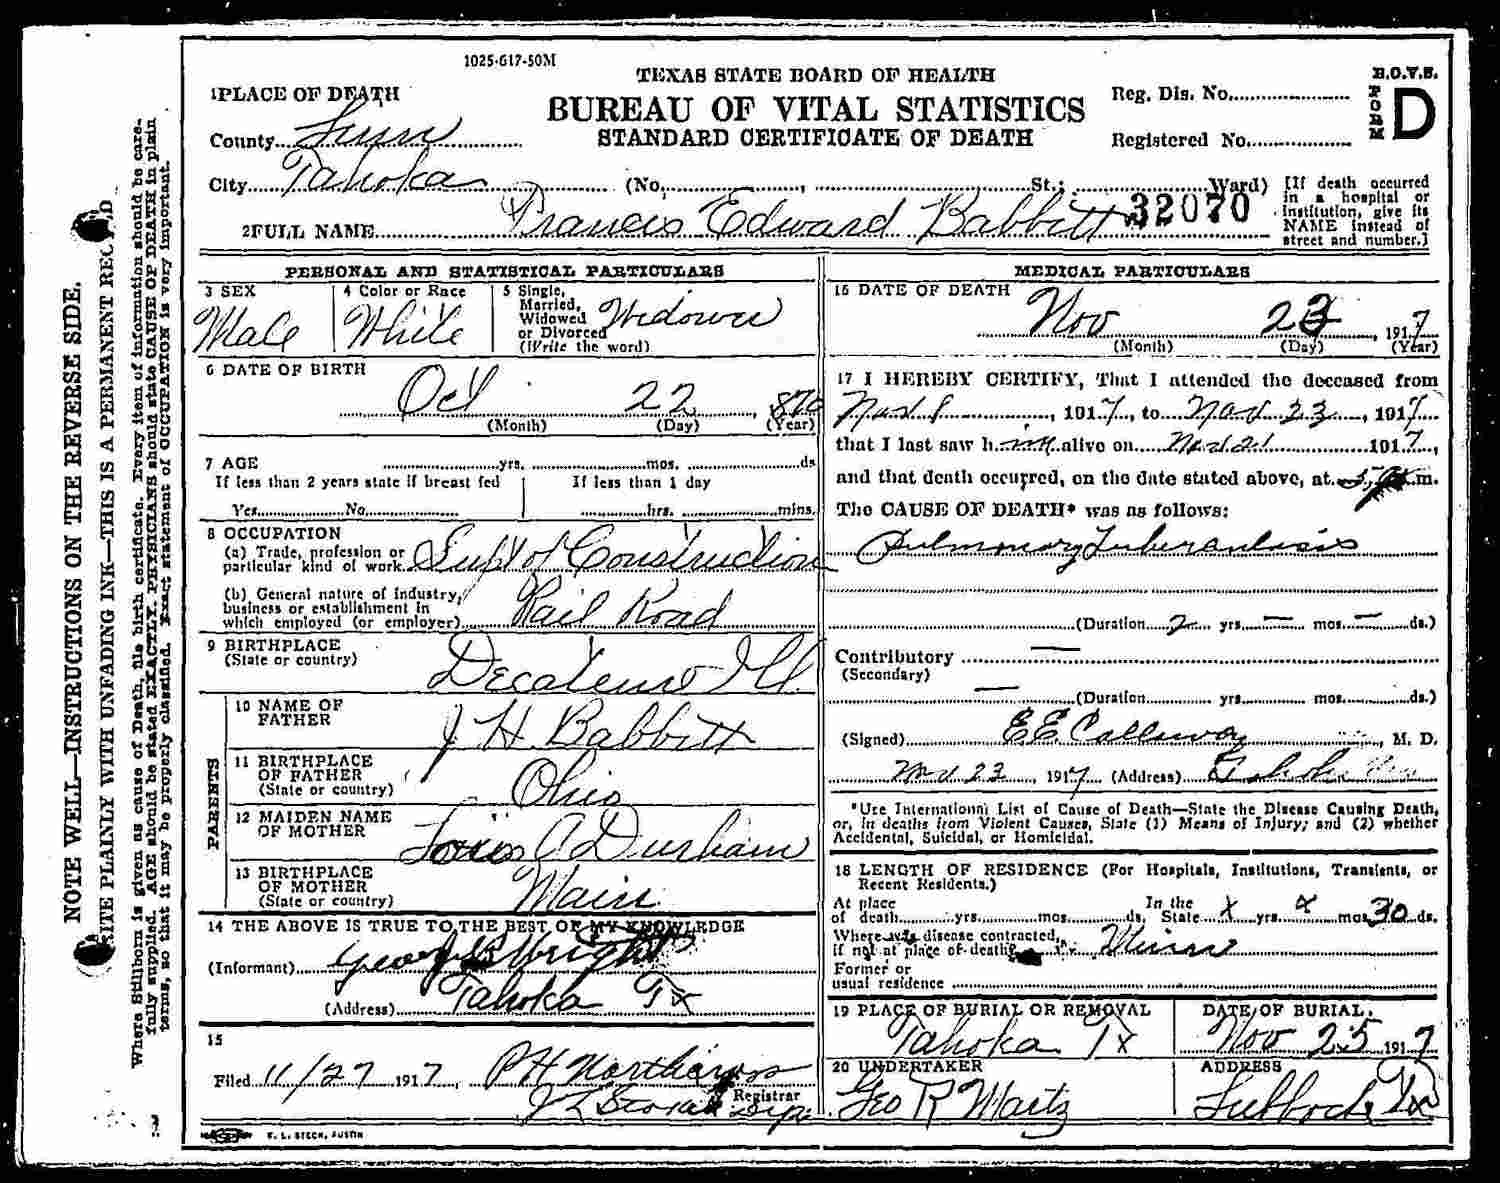 1025-617-50M
TEXAS STATE BOARD OF HEALTH
BUREAU OF VITAL STATISTICS
STANDARD CERTIFICATE OF DEATH
B.O.V.S.
FORM D
Reg. Dis. No.
Registered No.
1PLACE OF DEATH
County Lynn
City Tahoka (No. , St.; Ward)
[If death occurred in a hospital or institution, give its NAME instead of street and number.]
2FULL NAME Francis Edward Babbitt 32070
PERSONAL AND STATISTICAL PARTICULARS
3 SEX Male
4 Color or Race White
5 Single, Married, Widowed or Divorced (Write the word) Widower
6 DATE OF BIRTH
Oct 22, 870
(Month) (Day) (Year)
7 AGE yrs. mos. ds
If less than 2 years state if breast fed
Yes No
If less than 1 day
hrs. mins.
8 OCCUPATION
(a) Trade, profession or particular kind of work Supt of Construction
(b) General nature of industry, business or establishment in which employed (or employer) Rail Road
9 BIRTHPLACE
(State or country)
10 NAME OF FATHER J H Babbitt
PARENTS
11 BIRTHPLACE OF FATHER (State or country) Ohio
12 MAIDEN NAME OF MOTHER A Durham
13 BIRTHPLACE OF MOTHER (State or country)
14 THE ABOVE IS TRUE TO THE BEST OF MY KNOWLEDGE
(Informant) Wright
(Address) Tahoka Tx
15
Filed 11/27 1917, P H Northcross
Registrar
E. L. STECK, AUSTIN
MEDICAL PARTICULARS
16 DATE OF DEATH
Nov 23, 1917
(Month) (Day) (Year)
17 I HEREBY CERTIFY, That I attended the deceased from
, 1917, to Nov 23, 1917
that I last saw him alive on Nov 21 1917,
and that death occurred, on the date stated above, at m.
The CAUSE OF DEATH* was as follows:
Pulmonary Tuberculosis
(Duration 2 yrs. — mos — ds.)
Contributory —
(Secondary)
— (Duration yrs. mos. ds.)
(Signed) E E Callaway, M. D.
Nov 23, 1917 (Address) Tahoka
*Use International List of Cause of Death—State the Disease Causing Death, or, in deaths from Violent Causes, State (1) Means of Injury; and (2) whether Accidental, Suicidal, or Homicidal.
18 LENGTH OF RESIDENCE (For Hospitals, Institutions, Transients, or Recent Residents.)
At place of death yrs. mos. ds. In the State x yrs. x mos 30 ds.
Where was disease contracted, if not at place of death? Minn
Former or usual residence
19 PLACE OF BURIAL OR REMOVAL
Tahoka Tx
DATE OF BURIAL.
Nov 25 1917
20 UNDERTAKER
Geo R
ADDRESS
Lubbock Tx
NOTE WELL—INSTRUCTIONS ON THE REVERSE SIDE.
RITE PLAINLY WITH UNFADING INK—THIS IS A PERMANENT RECORD
Where Stillborn is given as cause of Death, file birth certificate. Every item of information should be carefully supplied. AGE should be stated EXACTLY. PHYSICIANS should state CAUSE OF DEATH in plain terms, so that it may be properly classified. Exact statement of OCCUPATION is very important.